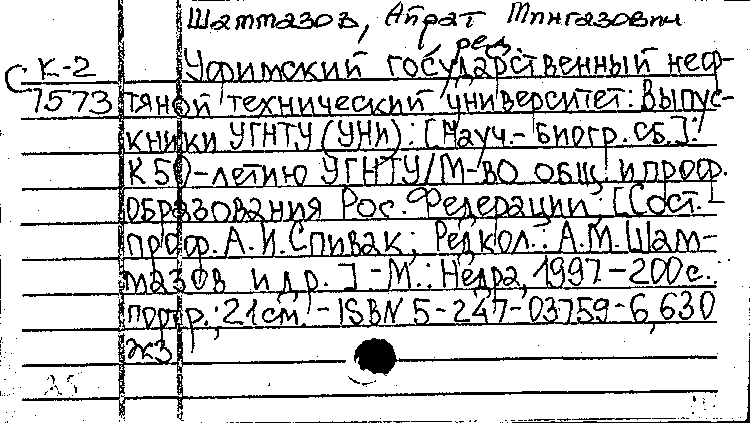 Шаммазов, Айрат Мингазович
ред.
С К-2 Уфимский государственный неф-
7573 тяной технический университет: Выпус-
кники УГНТУ (УНИ): [Науч.- биогр. сб.]:
К 50-летию УГНТУ/М-во общ. и проф.
образования Рос. Федерации; [Сост.
проф. А.И. Спивак; Редкол.: А.М. Шам-
мазов и др.] - М.: Недра, 1997 - 200 с.
портр.; 21 см. - ISBN 5-247-03759-6, 630
экз